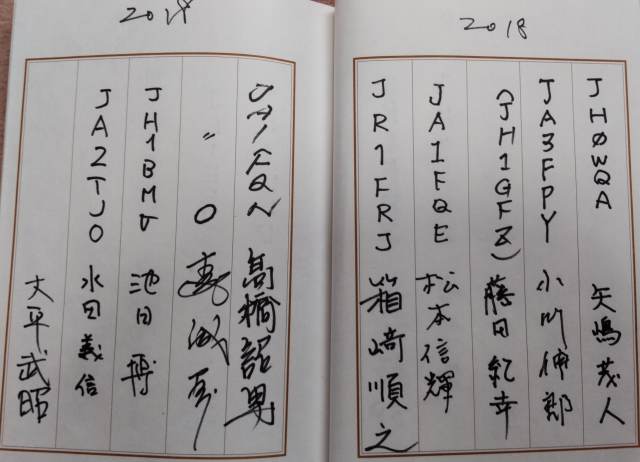 2018
JH0WQA 矢嶋茂人
JA3FPY 小川伸郎
(JH1GFZ) 藤田紀幸
JA1FQE 松本信輝
JR1FRJ 箱崎順之
高橋
〃 O
JH1BM 池田博
JA2TJO 水田義信
大平武昭